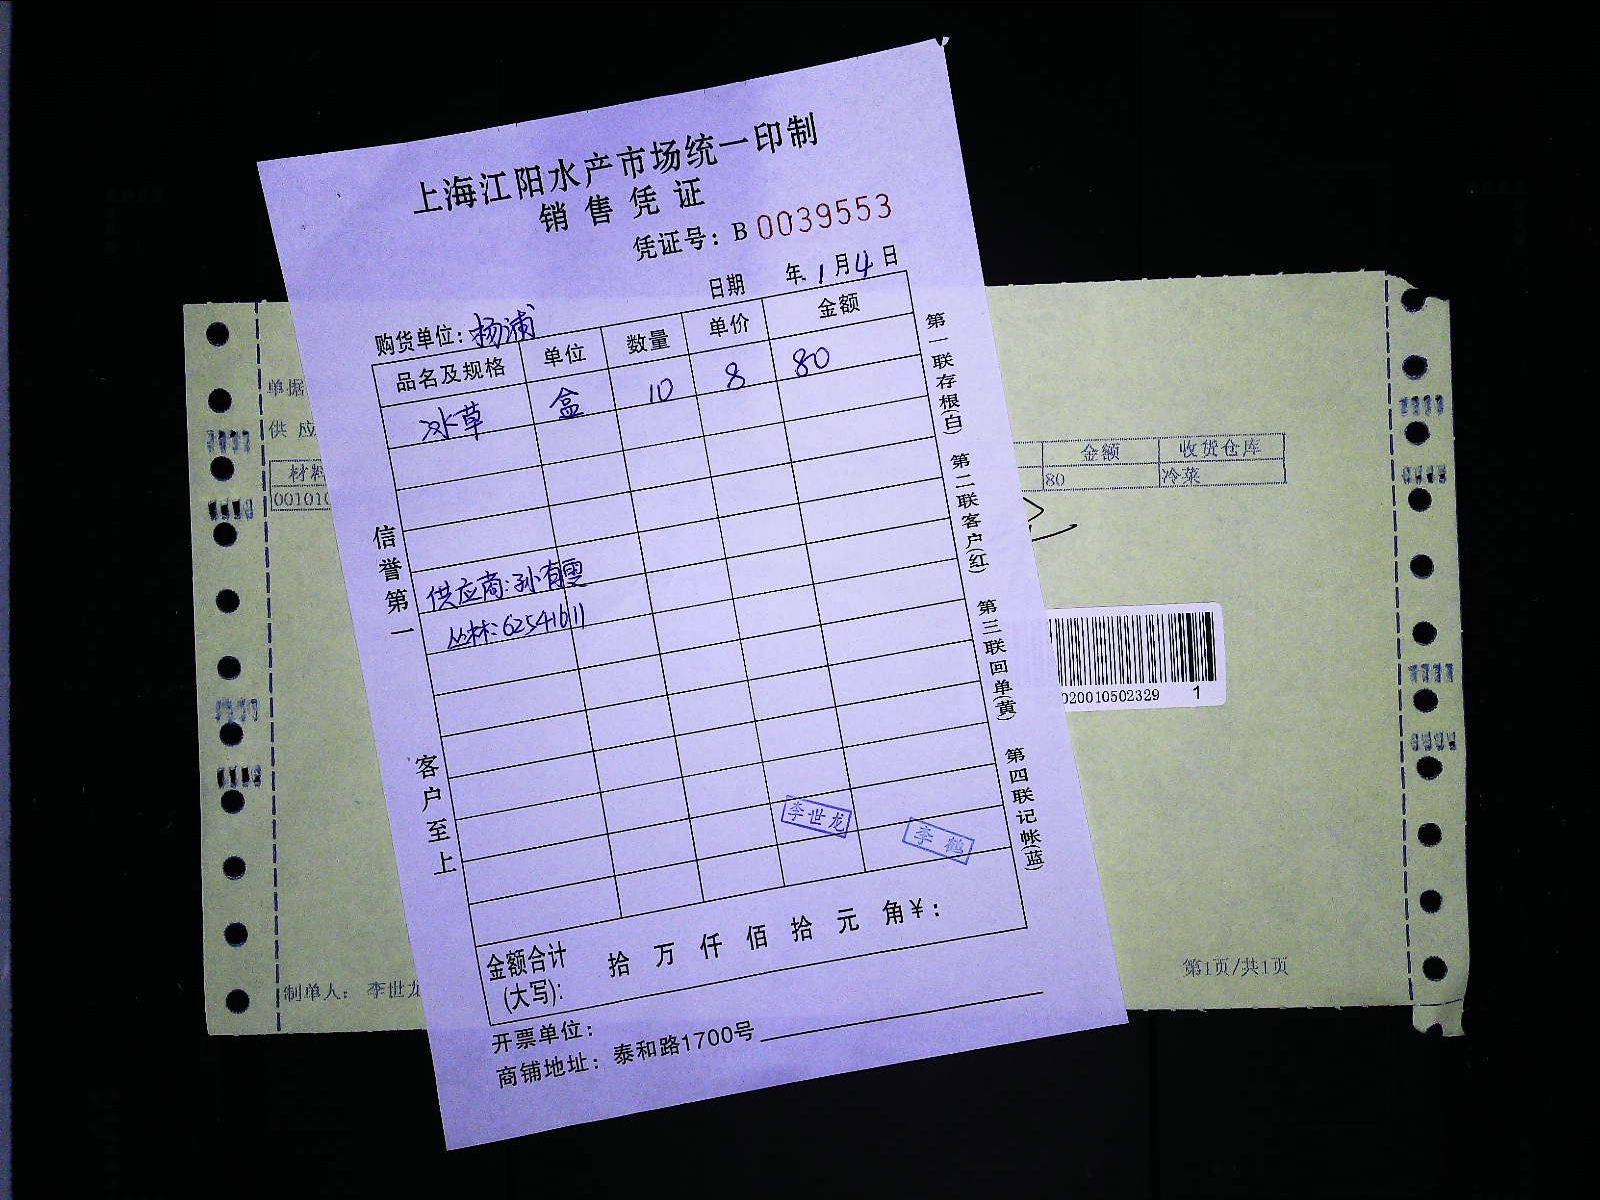 上海江阳水产市场统一印制
销售凭证
凭证号：B 0039553
日期 年 1 月 4 日
购货单位：杨浦
品名及规格 单位 数量 单价 金额
冰草 盒 10 8 80
供应商：孙有雯
丛林：62541611
信誉第一
客户至上
第一联存根(白)
第二联客户(红)
第三联回单(黄)
第四联记帐(蓝)
李世龙
李鹤
金额合计
(大写)：
拾 万 仟 佰 拾 元 角 ¥：
开票单位：
商铺地址：泰和路1700号
单据
供 应
材料
001010
金额 收货仓库
80 冷菜
020010502329 1
制单人： 李世龙
第1页/共1页